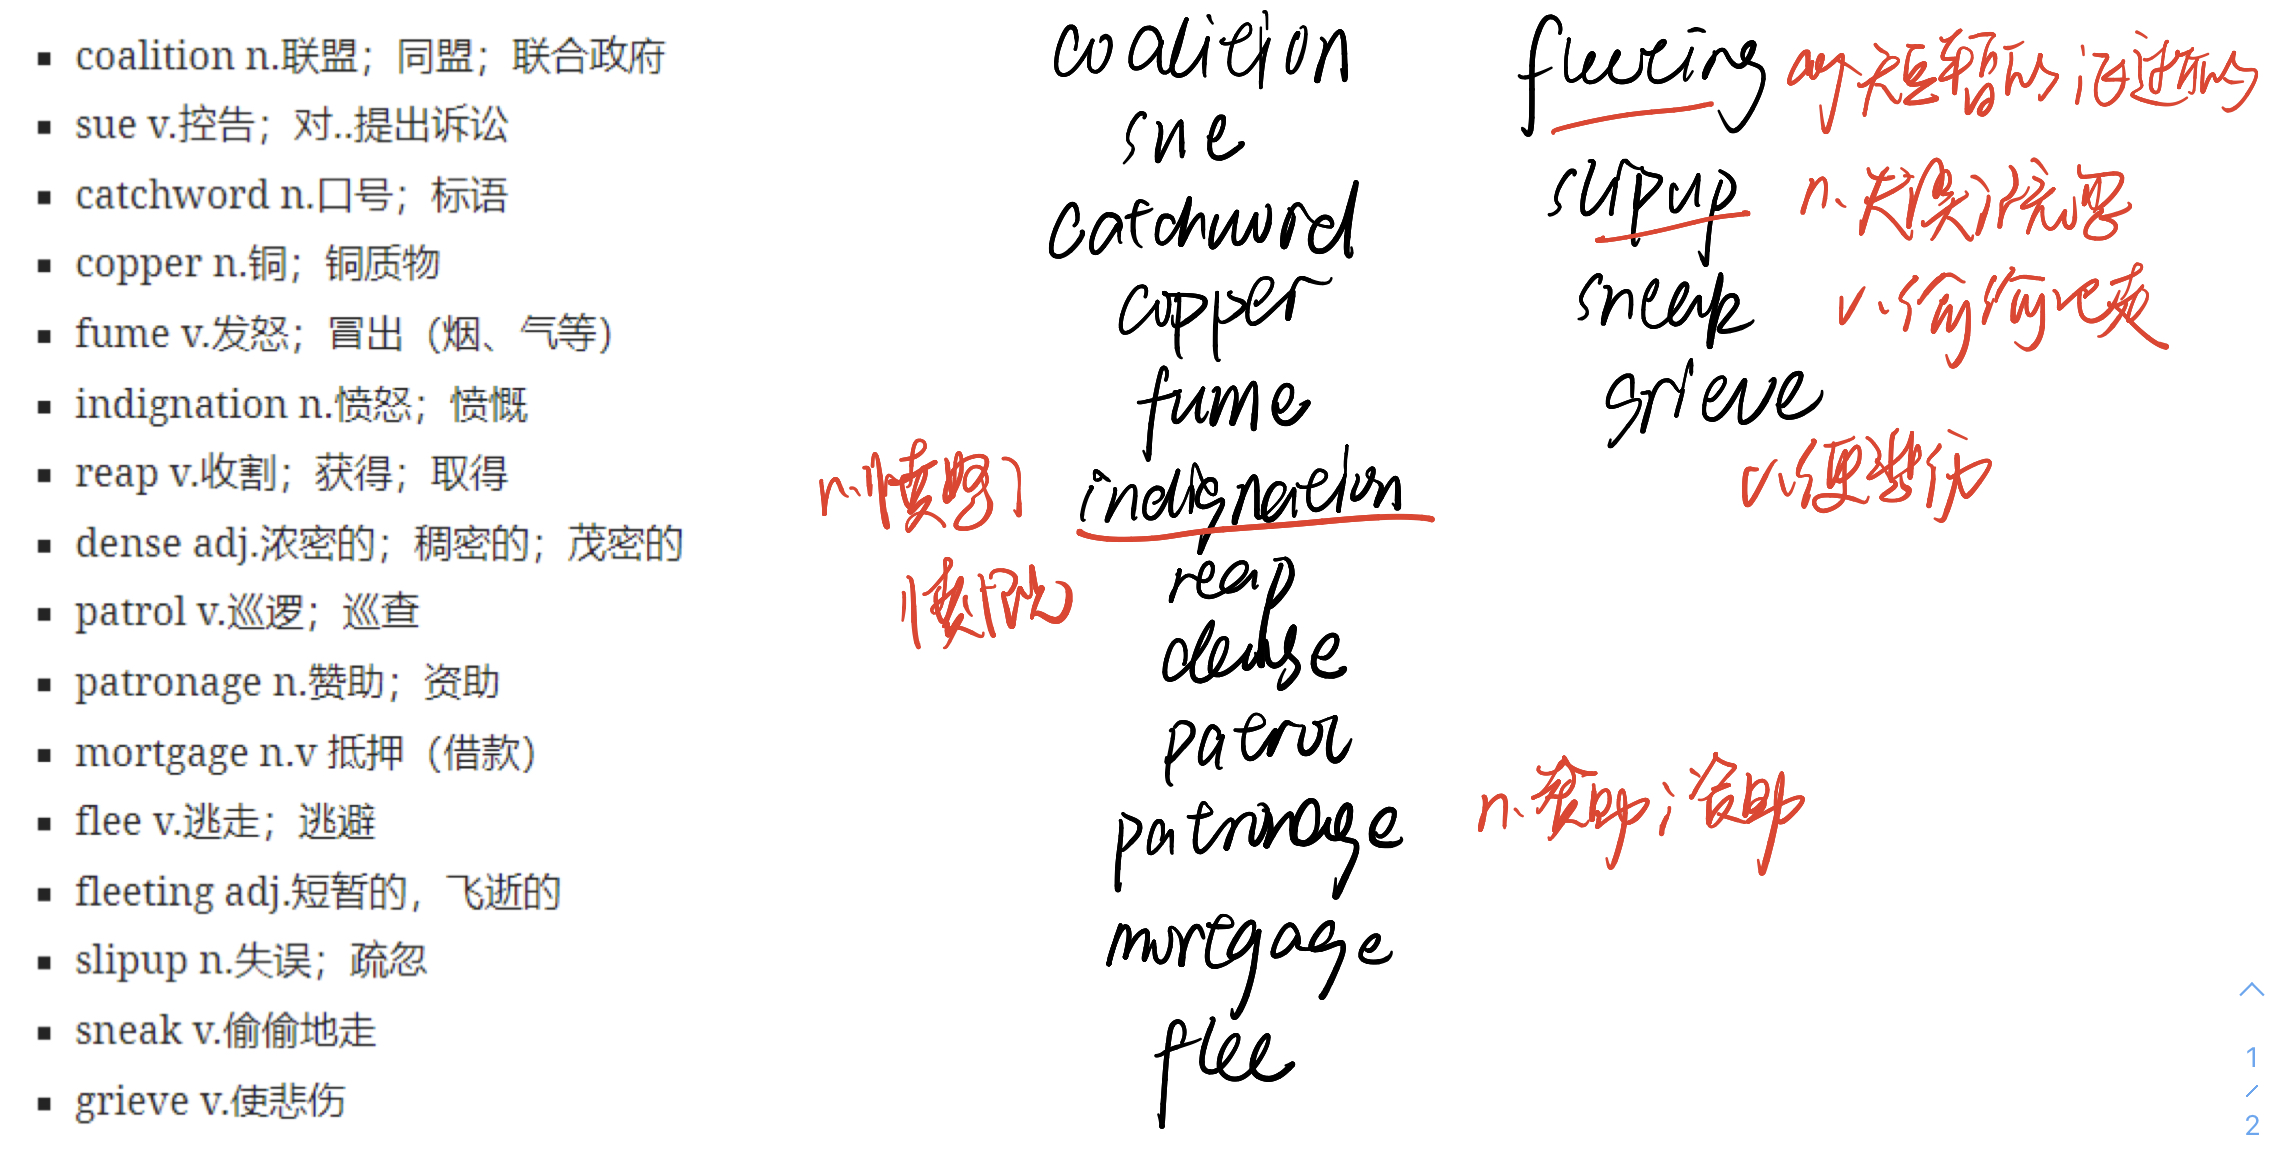 ▪ coalition n.联盟；同盟；联合政府
▪ sue v.控告；对..提出诉讼
▪ catchword n.口号；标语
▪ copper n.铜；铜质物
▪ fume v.发怒；冒出（烟、气等）
▪ indignation n.愤怒；愤慨
▪ reap v.收割；获得；取得
▪ dense adj.浓密的；稠密的；茂密的
▪ patrol v.巡逻；巡查
▪ patronage n.赞助；资助
▪ mortgage n.v 抵押（借款）
▪ flee v.逃走；逃避
▪ fleeting adj.短暂的，飞逝的
▪ slipup n.失误；疏忽
▪ sneak v.偷偷地走
▪ grieve v.使悲伤
coalition
sue
catchword
copper
fume
n.愤怒；
愤慨
indignation
reap
dense
patrol
patronage n.赞助；资助
mortgage
flee
fleeting adj 短暂的；飞逝的
slipup n.失误；疏忽
sneak v.偷偷地走
grieve
v.使悲伤
1
/
2